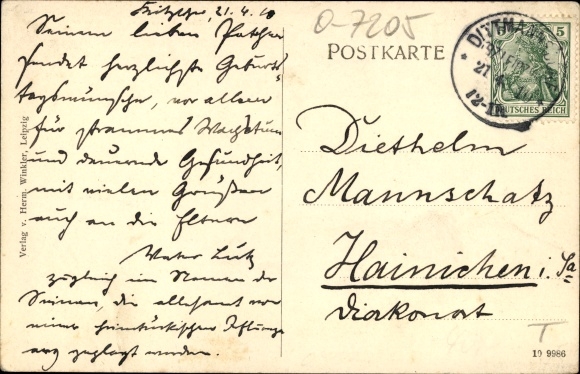 21.4.10
Seinem lieben Pathen
sendet herzlichste Geburts-
tagswünsche, vor allem
für strammes Wachstum
und dauernde Gesundheit,
mit vielen Grüßen
auch an die Eltern
Vater Lutz
zugleich im Namen der
Seinen, die allesamt von
einer heimtückischen
arg geplagt werden.
Verlag v. Herm. Winkler, Leipzig
0-7205
POSTKARTE
DITTMANNS
12-1N
5
DEUTSCHES REICH
Diethelm
Mannschatz
Hainichen i. Sa
Diakonat
T
10 9986